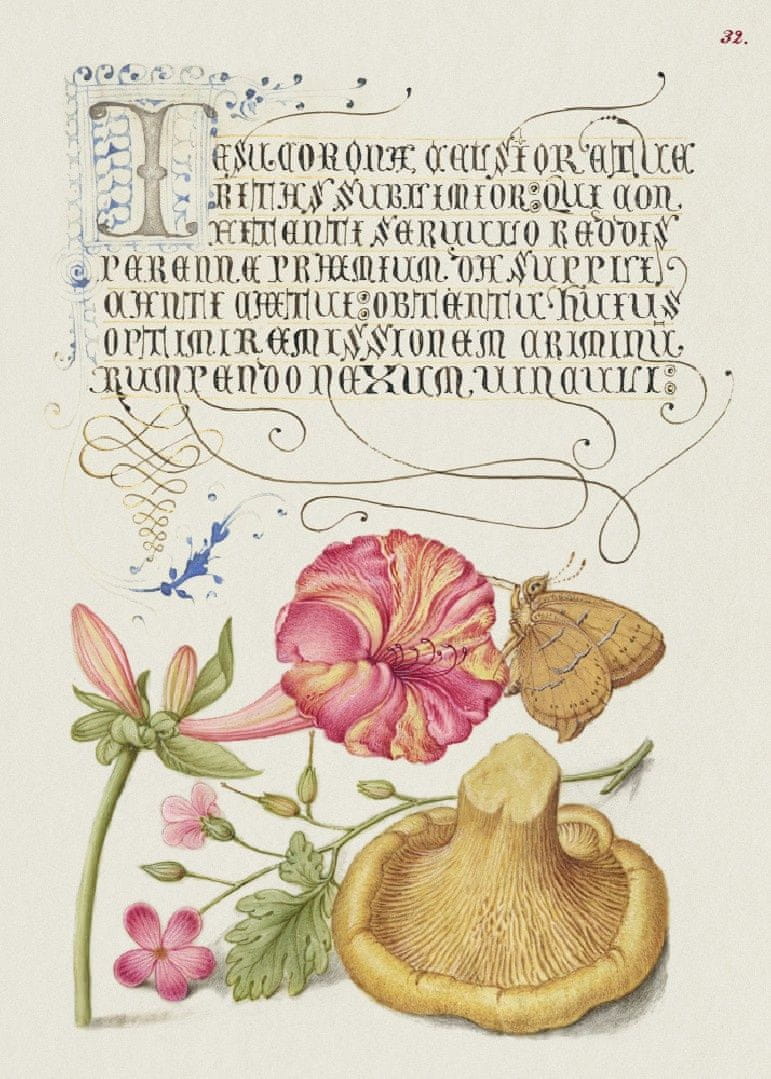 32.
IESU CORONÆ CELSIOR ET UE
RITAS SUBLIMIOR: QUI CON
FITENTI SERUULO REDDIS
PERENNE PRÆMIUM. DA SUPPLI
CANTI CÆTUI: OBTENTU HUIUS
OPTIMI REMISSIONEM CRIMINU.
RUMPENDO NEXUM UINCULI: